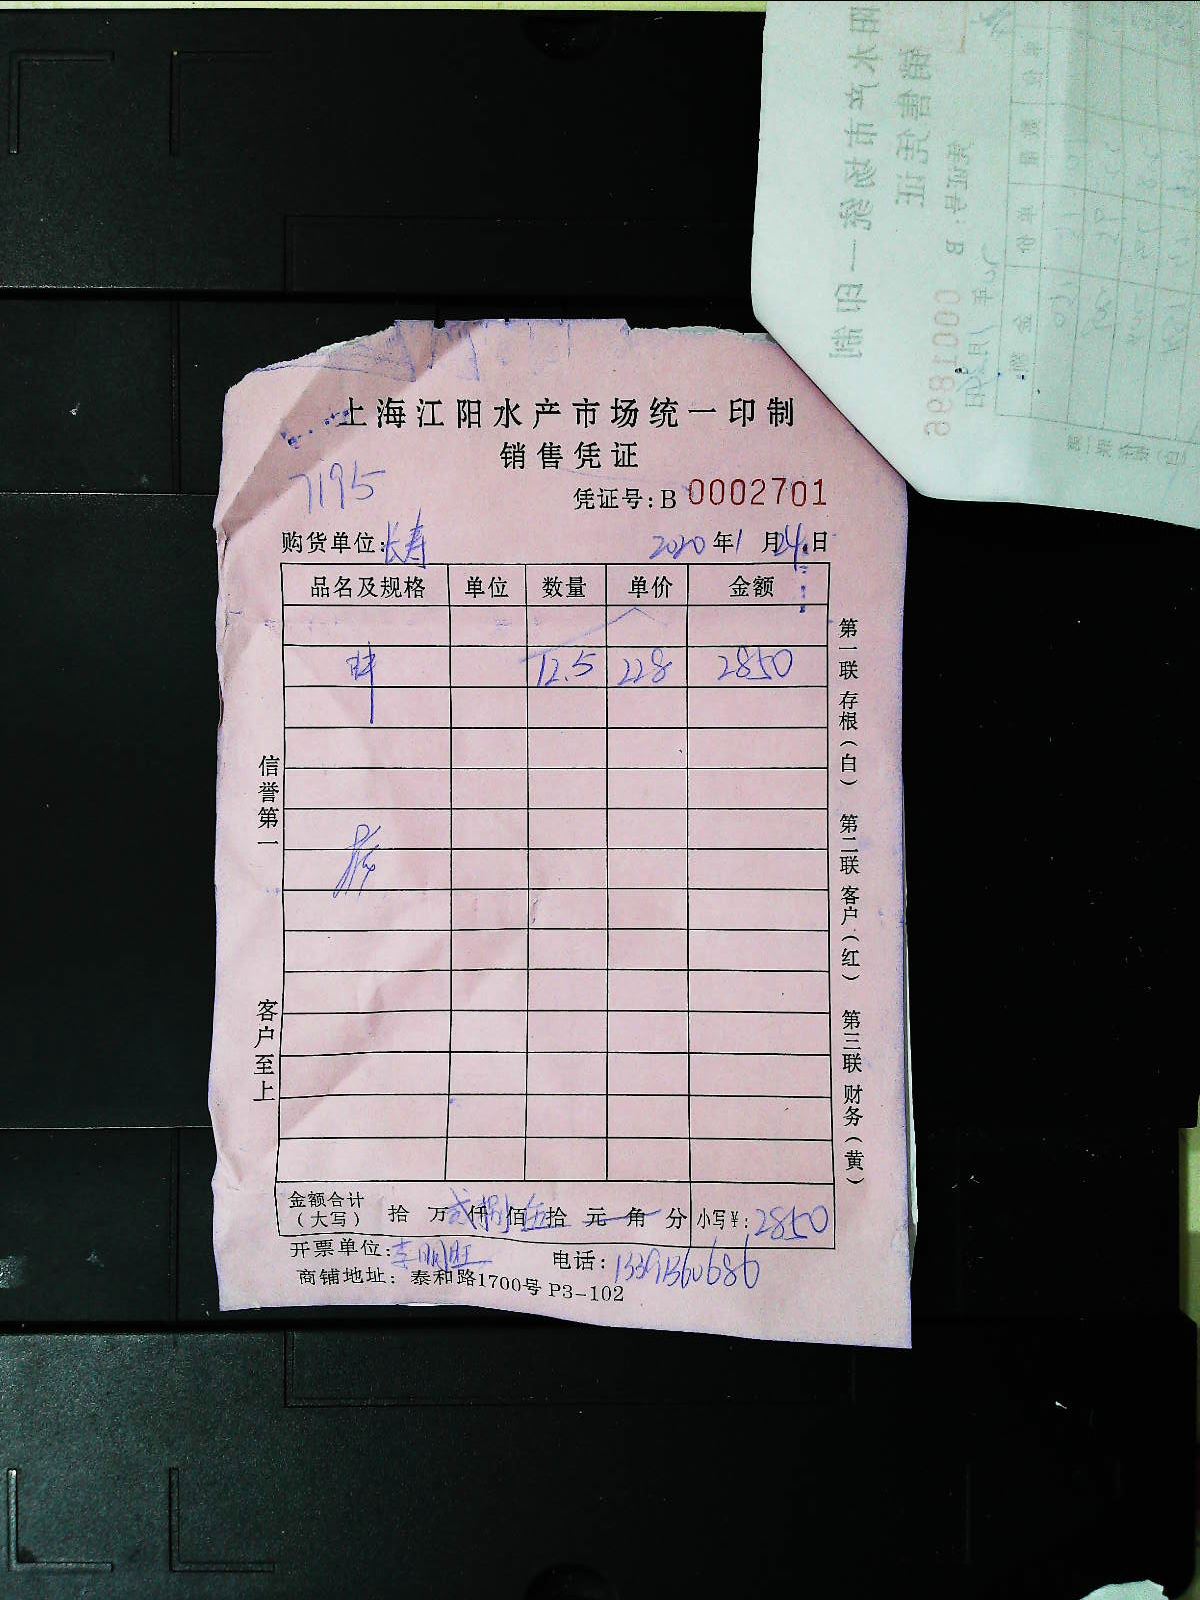 上海江阳水产市场统一印制
销售凭证
7195
凭证号:B 0002701
购货单位:长寿 2020年1月24日
品名及规格 单位 数量 单价 金额
12.5 228 2850
信誉第一
客户至上
第一联存根(白) 第二联客户(红) 第三联财务(黄)
金额合计(大写) 拾 万贰仟捌佰伍拾元角分 小写¥:2850
开票单位:李明旺 电话:13391360686
商铺地址:泰和路1700号 P3-102
阳水产市场统一印制
销售凭证
凭证号:B 0001896